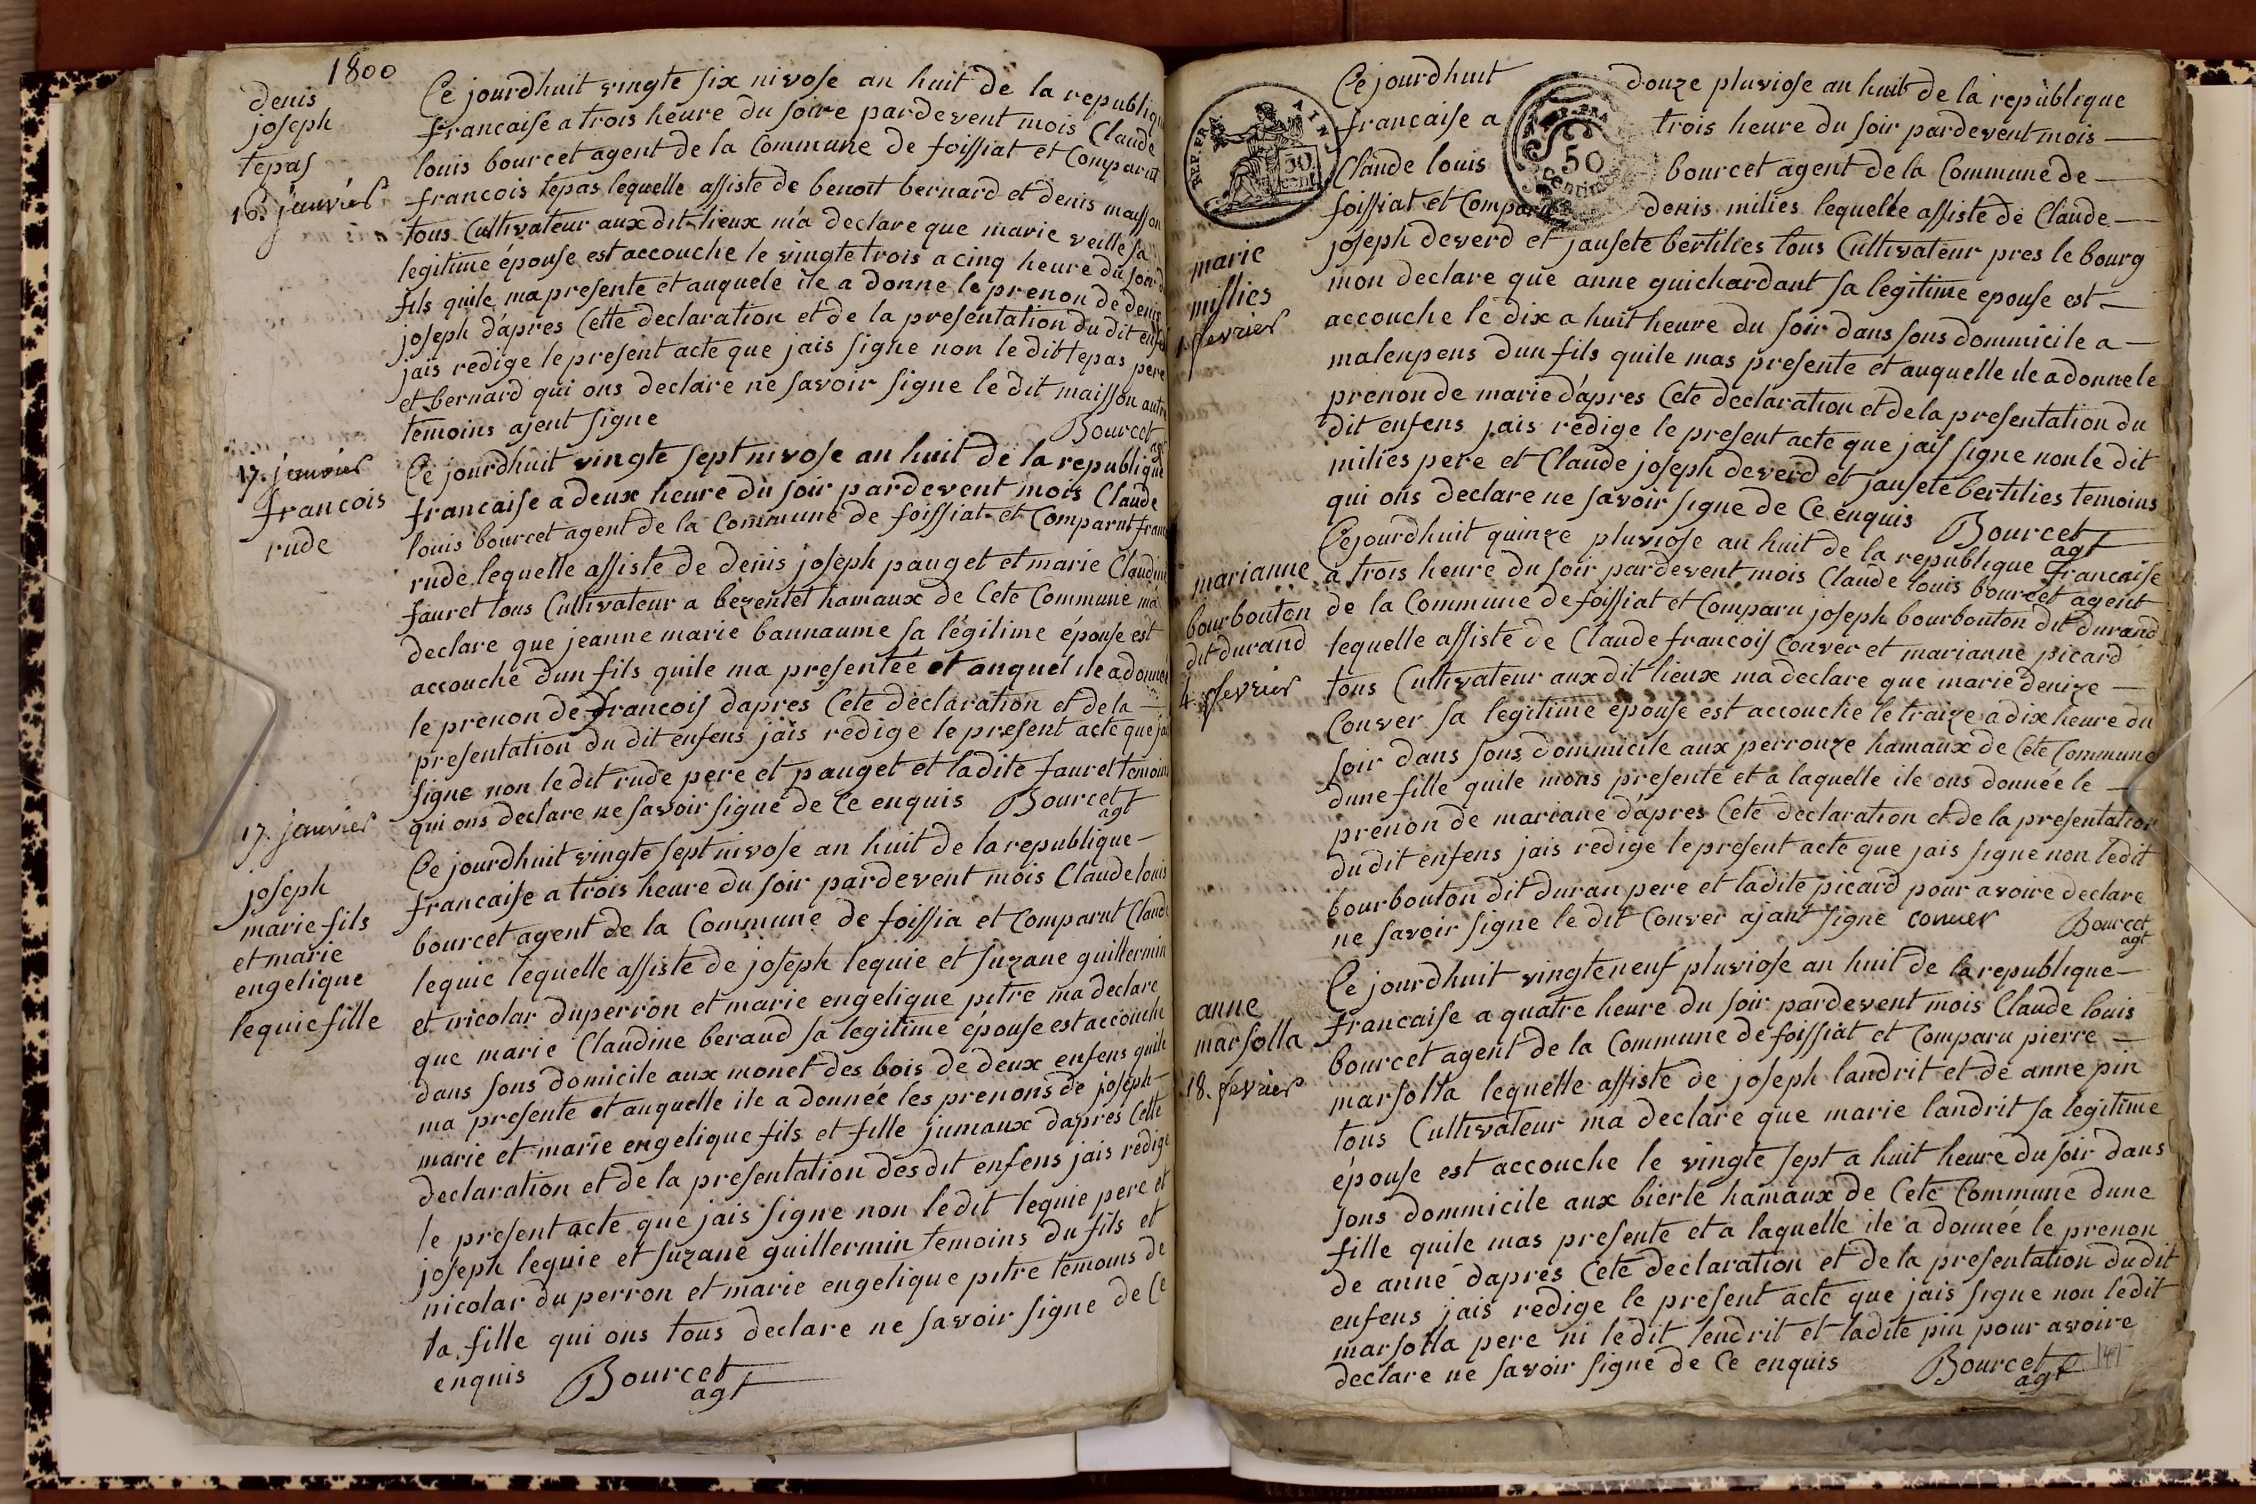 1800
denis
joseph
tepas
16. janvier
Ce jourdhuit vingte six nivose an huit de la republique
francaise a trois heure du soire pardevent mois Claude
louis bourcet agent de la Commune de foissiat et Comparut
francois tepas lequelle assiste de benoit bernard et denis maisson
tous Cultivateur aux dit lieux m'a declare que marie veille sa
legitime épouse est accouche le vingte trois a cinq heure du soir d
fils quile ma presente et auquele ile a donne le prenon de denis
joseph d'apres Cette declaration et de la presentation du dit enfens
jais redige le present acte que jais signe non le dit tepas pere
et bernard qui ons declare ne savoir signe le dit maisson autre
temoins ajent signe
Bourcet
agt
17. janvier
francois
rude
Ce jourdhuit vingte sept nivose an huit de la republique
francaise a deux heure du soir pardevent mois Claude
louis bourcet agent de la Commune de foissiat et Comparut franc
rude lequelle assiste de denis joseph pauget et marie Claudine
fauret tous Cultivateur a bezentet hamaux de Cete Commune ma
declare que jeanne marie bannaume sa légitime épouse est
accouche dun fils quile ma presentée et auquel ile a donnée
le prenon de francois dapres Cete declaration et dela —
presentation du dit enfens jais redige le present acte que jai
signe non le dit rude pere et pauget et ladite fauret temoins
qui ons declare ne savoir signe de Ce enquis Bourcet
agt
17. janvier
joseph
marie fils
et marie
engelique
lequie fille
Ce jourdhuit vingte sept nivose an huit de la republique —
francaise a trois heure du soir pardevent mois Claude louis
bourcet agent de la Commune de foissia et Comparut Claude
lequie lequelle assiste de joseph lequie et suzane guillermin
et nicolar duperron et marie engelique pitre ma declare
que marie Claudine beraud sa legitime épouse est accouche
dans sons domicile aux monet des bois de deux enfens quile
ma presente et auquelle ile a donnée les prenons de joseph —
marie et marie engelique fils et fille jumaux dapres Cette
declaration et de la presentation des dit enfens jais redige
le present acte que jais signe non le dit lequie pere et
joseph lequie et suzane guillermin temoins du fils et
nicolar du perron et marie engelique pitre temoins de
la fille qui ons tous declare ne savoir signe de Ce
enquis Bourcet
agt
REP. FRA
AIN
50
cent.
REP. FRA
50
Centimes
marie
millies
1. fevrier
Ce jourdhuit douze pluviose an huit de la republique
francaise a trois heure du soir pardevent mois —
Claude louis bourcet agent de la Commune de —
foissiat et Comparu denis milies lequelle assiste de Claude —
joseph deverd et jausete bertilies tous Cultivateur pres le bourg
mon declare que anne guichardant sa legitime epouse est —
accouche le dix a huit heure du soir dans sons dommicile a —
malenpens dun fils quile mas presente et auquelle ile a donne le
prenon de marie d'apres Cete declaration et de la presentation du
dit enfens jais redige le present acte que jais signe non le dit
milies pere et Claude joseph deverd et jausete bertilies temoins
qui ons declare ne savoir signe de Ce enquis Bourcet
agt
marianne
bourbouton
dit durand
4. fevrier
Ce jourdhuit quinze pluviose an huit de la republique francaise
a trois heure du soir pardevent mois Claude louis bourcet agent
de la Commune de foissiat et Comparu joseph bourbouton dit durand
lequelle assiste de Claude francois Conver et marianne picard
tous Cultivateur aux dit lieux ma declare que marie denize —
Conver sa legitime épouse est accouche le traize a dix heure du
soir dans sons dommicile aux perrouze hamaux de Cete Commune
dune fille quile mons presente et a laquelle ile ons donnée le —
prenon de mariane d'apres Cete declaration et de la presentation
du dit enfens jais redige le present acte que jais signe non le dit
bourbouton dit duran pere et ladite picard pour avoire declare
ne savoir signe le dit Conver ajant signe conver Bourcet
agt
anne
marsolla
18. fevrier
Ce jourdhuit vingte neuf pluviose an huit de la republique —
francaise a quatre heure du soir pardevent mois Claude louis
bourcet agent de la Commune de foissiat et Comparu pierre —
marsolla lequelle assiste de joseph landrit et de anne pin
tous Cultivateur ma declare que marie landrit sa legitime
épouse est accouche le vingte sept a huit heure du soir dans
sons dommicile aux bierle hamaux de Cete Commune dune
fille quile mas presente et a laquelle ile a donnée le prenon
de anne dapres Cete declaration et de la presentation du dit
enfens jais redige le present acte que jais signe non le dit
marsolla pere ni le dit lendrit et ladite pin pour avoire
declare ne savoir signe de Ce enquis Bourcet
agt